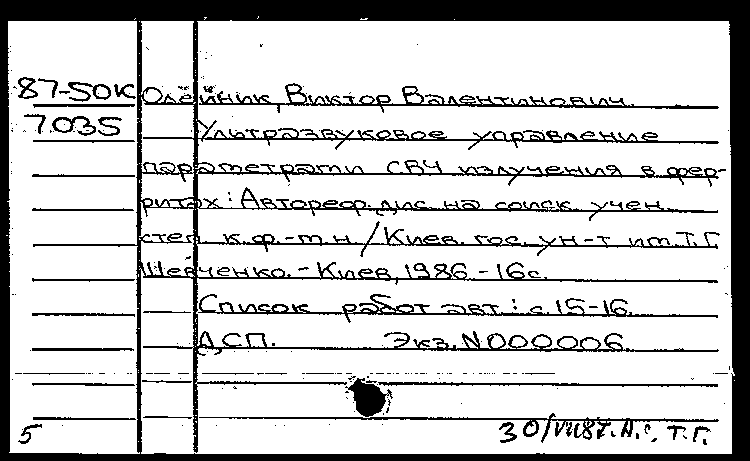 87-50К Олейник, Виктор Валентинович.
7035 Ультразвуковое управление
параметрами СВЧ излучения в фер-
ритах: Автореф. дис. на соиск. учен.
степ. к.ф.-м.н. / Киев. гос. ун-т им. Т.Г.
Шевченко. - Киев, 1986. - 16с.
Список работ авт.: с. 15-16.
ДСП. Экз. N000006.
5 30/VII87. А.С. Т.Г.